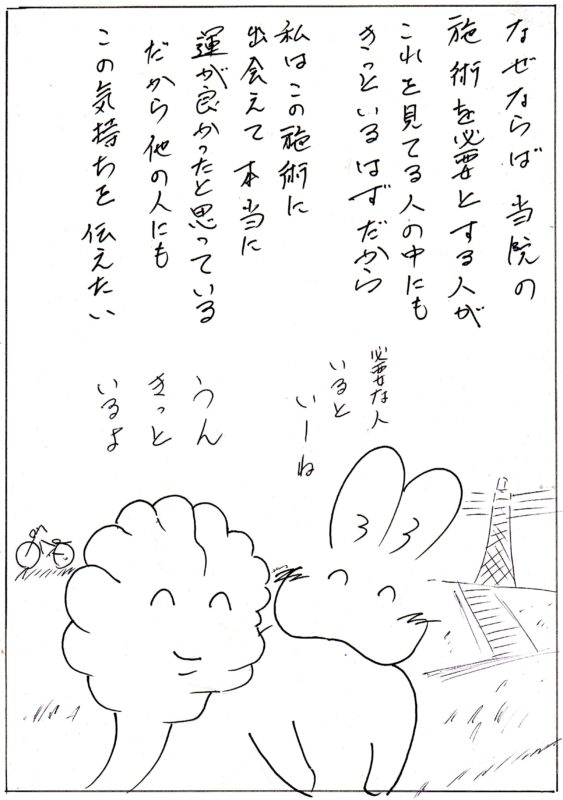 なぜならば 当院の
施術を必要とする人が
これを見てる人の中にも
きっといるはずだから
私はこの施術に
出会えて 本当に
運が良かったと思っている
だから 他の人にも
この気持ちを 伝えたい
必要な人
いると
いーね
うん
きっと
いるよ